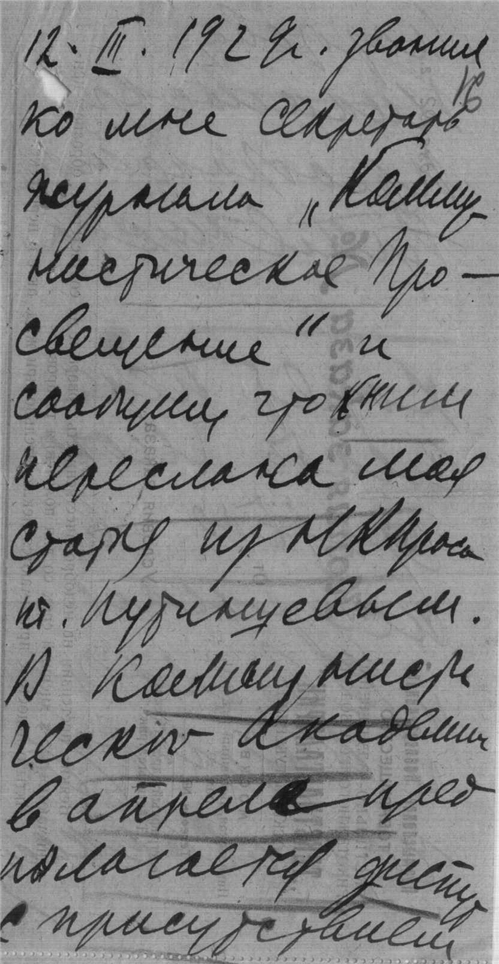 12. III. 1929г. звонил
ко мне секретарь
журнала „Комму
нистическое Про–
свещение“ и
сообщил что к ним
переслана моя
статья из НКПроса
т. Путинцевым.
В Коммунисти
ческой Академии
в апреле пред
полагается диспут
с присутствием